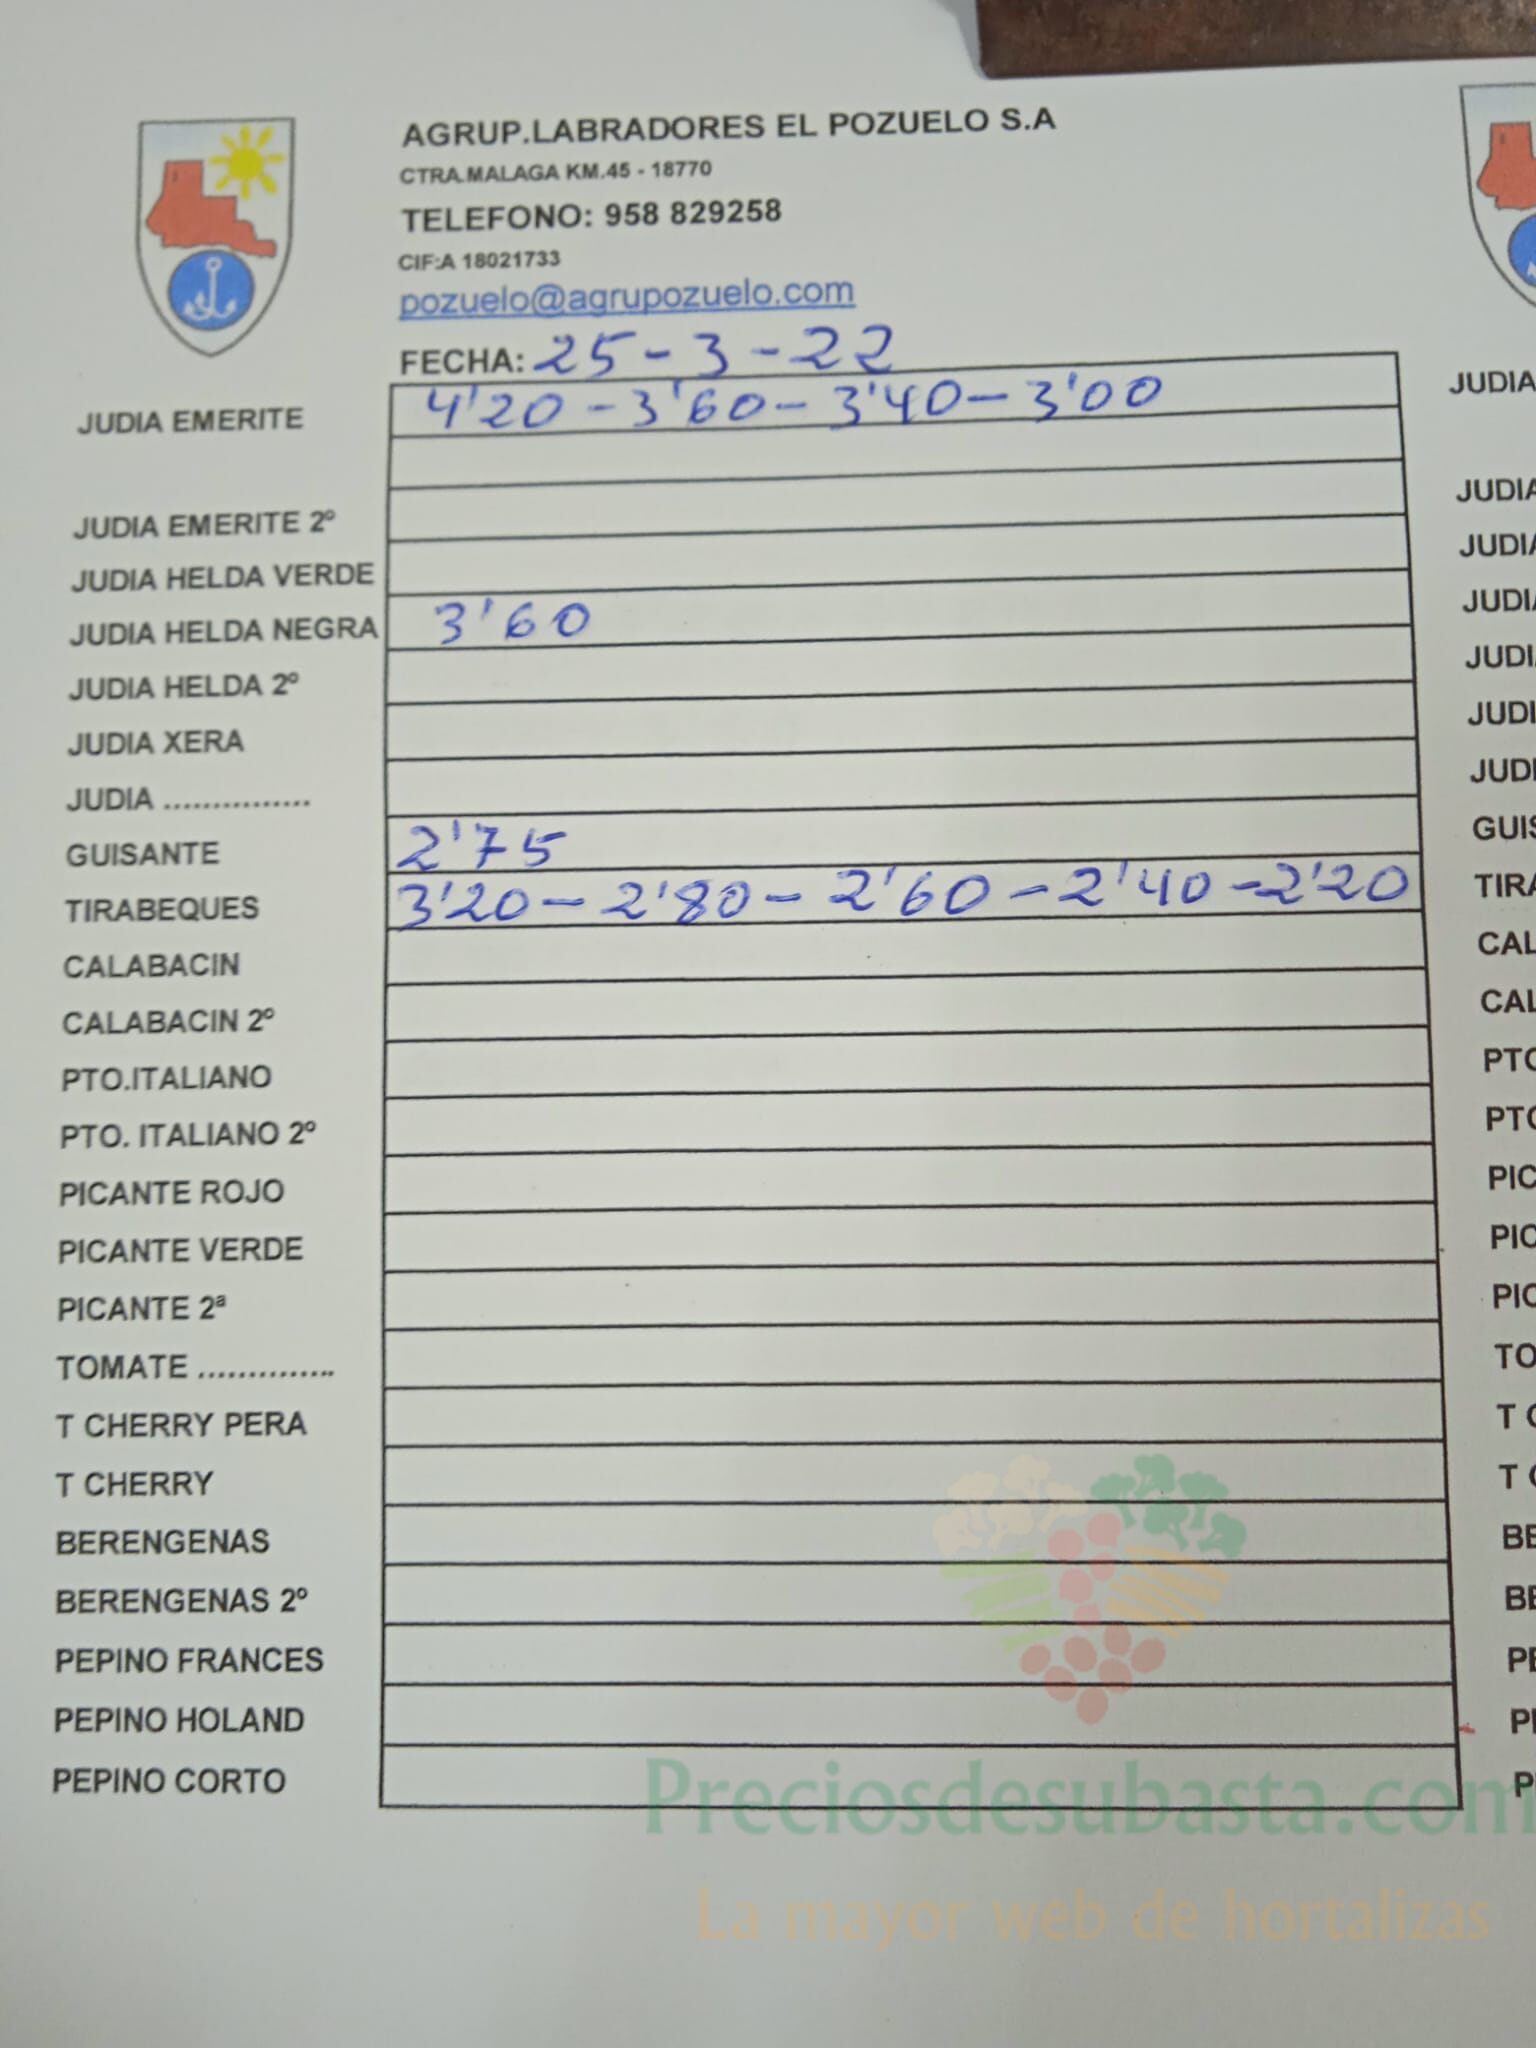 AGRUP.LABRADORES EL POZUELO S.A
CTRA.MALAGA KM.45 - 18770
TELEFONO: 958 829258
CIF:A 18021733
pozuelo@agrupozuelo.com
FECHA: 25-3-22
JUDIA EMERITE 4'20 - 3'60 - 3'40 - 3'00
JUDIA EMERITE 2º
JUDIA HELDA VERDE
JUDIA HELDA NEGRA 3'60
JUDIA HELDA 2º
JUDIA XERA
JUDIA ...............
GUISANTE 2'75
TIRABEQUES 3'20 - 2'80 - 2'60 - 2'40 - 2'20
CALABACIN
CALABACIN 2º
PTO.ITALIANO
PTO. ITALIANO 2º
PICANTE ROJO
PICANTE VERDE
PICANTE 2ª
TOMATE ..............
T CHERRY PERA
T CHERRY
BERENGENAS
BERENGENAS 2º
PEPINO FRANCES
PEPINO HOLAND
PEPINO CORTO
JUDIA
JUDIA
JUDIA
JUDIA
JUDI
JUDI
JUDI
GUIS
TIRA
CAL
CAL
PTO
PTO
PIC
PIC
PIC
TO
T C
T C
BE
BE
PE
PE
P
Preciosdesubasta.com
La mayor web de hortalizas